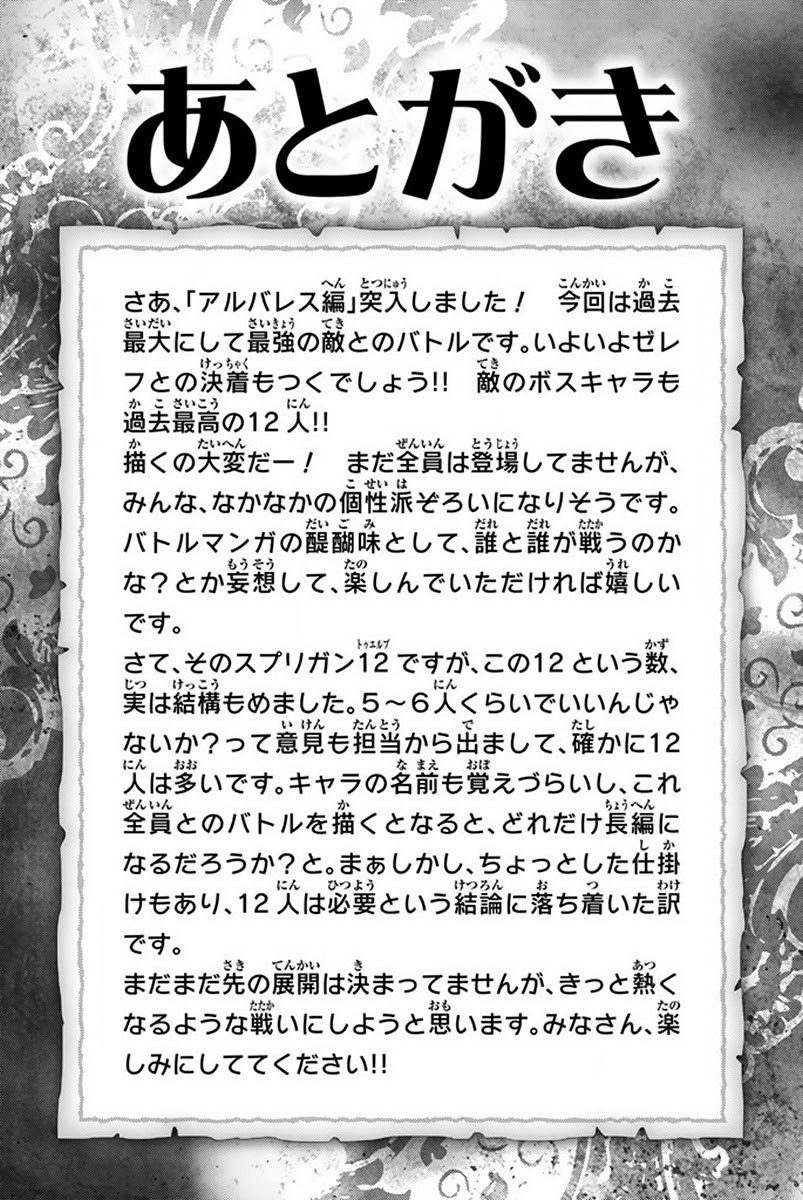 あとがき
さあ、「アルバレス編」突入しました！　今回は過去
最大にして最強の敵とのバトルです。いよいよゼレ
フとの決着もつくでしょう!!　敵のボスキャラも
過去最高の12人!!
描くの大変だー！　まだ全員は登場してませんが、
みんな、なかなかの個性派ぞろいになりそうです。
バトルマンガの醍醐味として、誰と誰が戦うのか
な？とか妄想して、楽しんでいただければ嬉しい
です。
さて、そのスプリガン12ですが、この12という数、
実は結構もめました。5～6人くらいでいいんじゃ
ないか？って意見も担当から出まして、確かに12
人は多いです。キャラの名前も覚えづらいし、これ
全員とのバトルを描くとなると、どれだけ長編に
なるだろうか？と。まぁしかし、ちょっとした仕掛
けもあり、12人は必要という結論に落ち着いた訳
です。
まだまだ先の展開は決まってませんが、きっと熱く
なるような戦いにしようと思います。みなさん、楽
しみにしててください!!